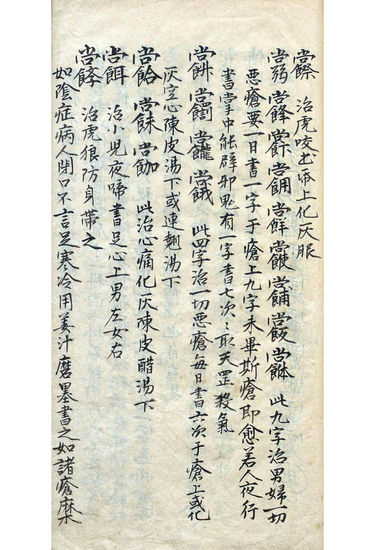 治虎咬书帋上化灰服
此九字治男婦一切
惡瘡要一日書一字于瘡上九字未畢斯瘡即愈若人夜行
書掌中能辟邪鬼有一字書七次々取天罡殺氣
此四字治一切惡瘡每日書六次于瘡上或化
灰空心陳皮湯下或連翹湯下
此治心痛化灰陳皮醋湯下
治小児夜啼書足心上男左女右
治虎狼防身帶之
如陰症病人閉口不言足寒冷用姜汁磨墨書之如諸瘡